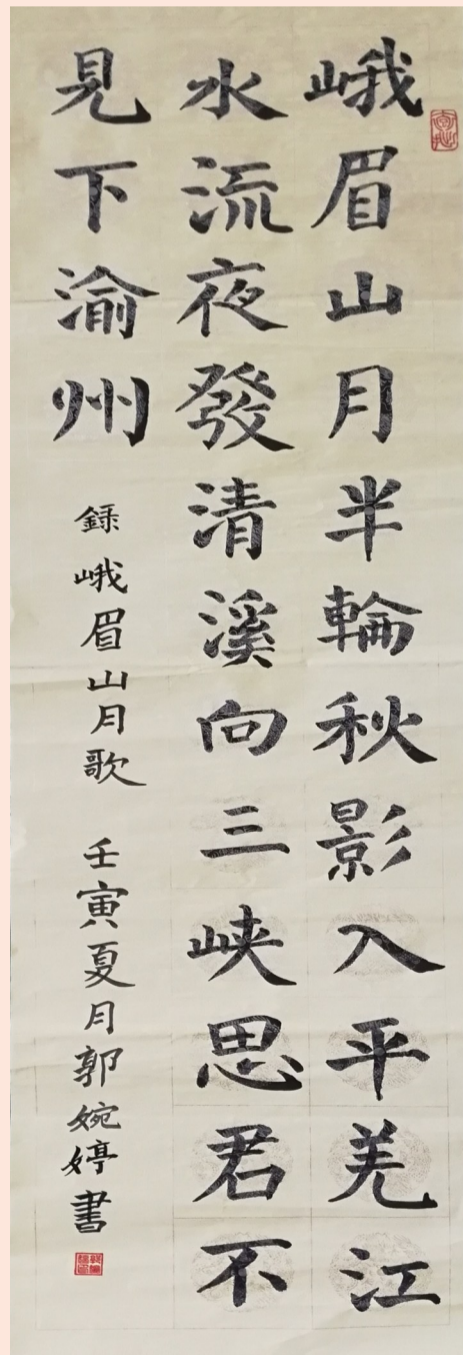 峨眉山月半輪秋影入平羌江
水流夜發清溪向三峡思君不
見下渝州
録峨眉山月歌 壬寅夏月郭婉婷書